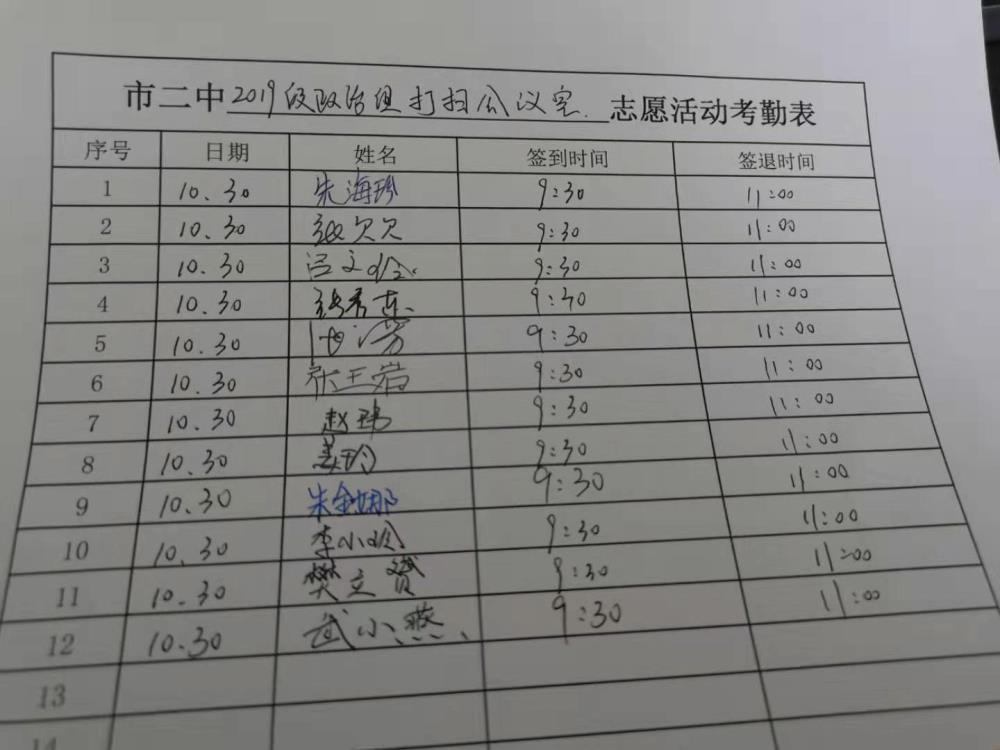 市二中2019级政治组打扫会议室.志愿活动考勤表
序号 日期 姓名 签到时间 签退时间
1 10.30 朱海玲 9:30 11:00
2 10.30 张欠欠 9:30 11:00
3 10.30 吕文 9:30 11:00
4 10.30 张秀 9:30 11:00
5 10.30 9:30 11:00
6 10.30 张玉岩 9:30 11:00
7 10.30 赵玮 9:30 11:00
8 10.30 姜玲 9:30 11:00
9 10.30 朱金娜 9:30 11:00
10 10.30 李小玲 9:30 11:00
11 10.30 樊立赟 9:30 11:00
12 10.30 武小燕 9:30 11:00
13
14